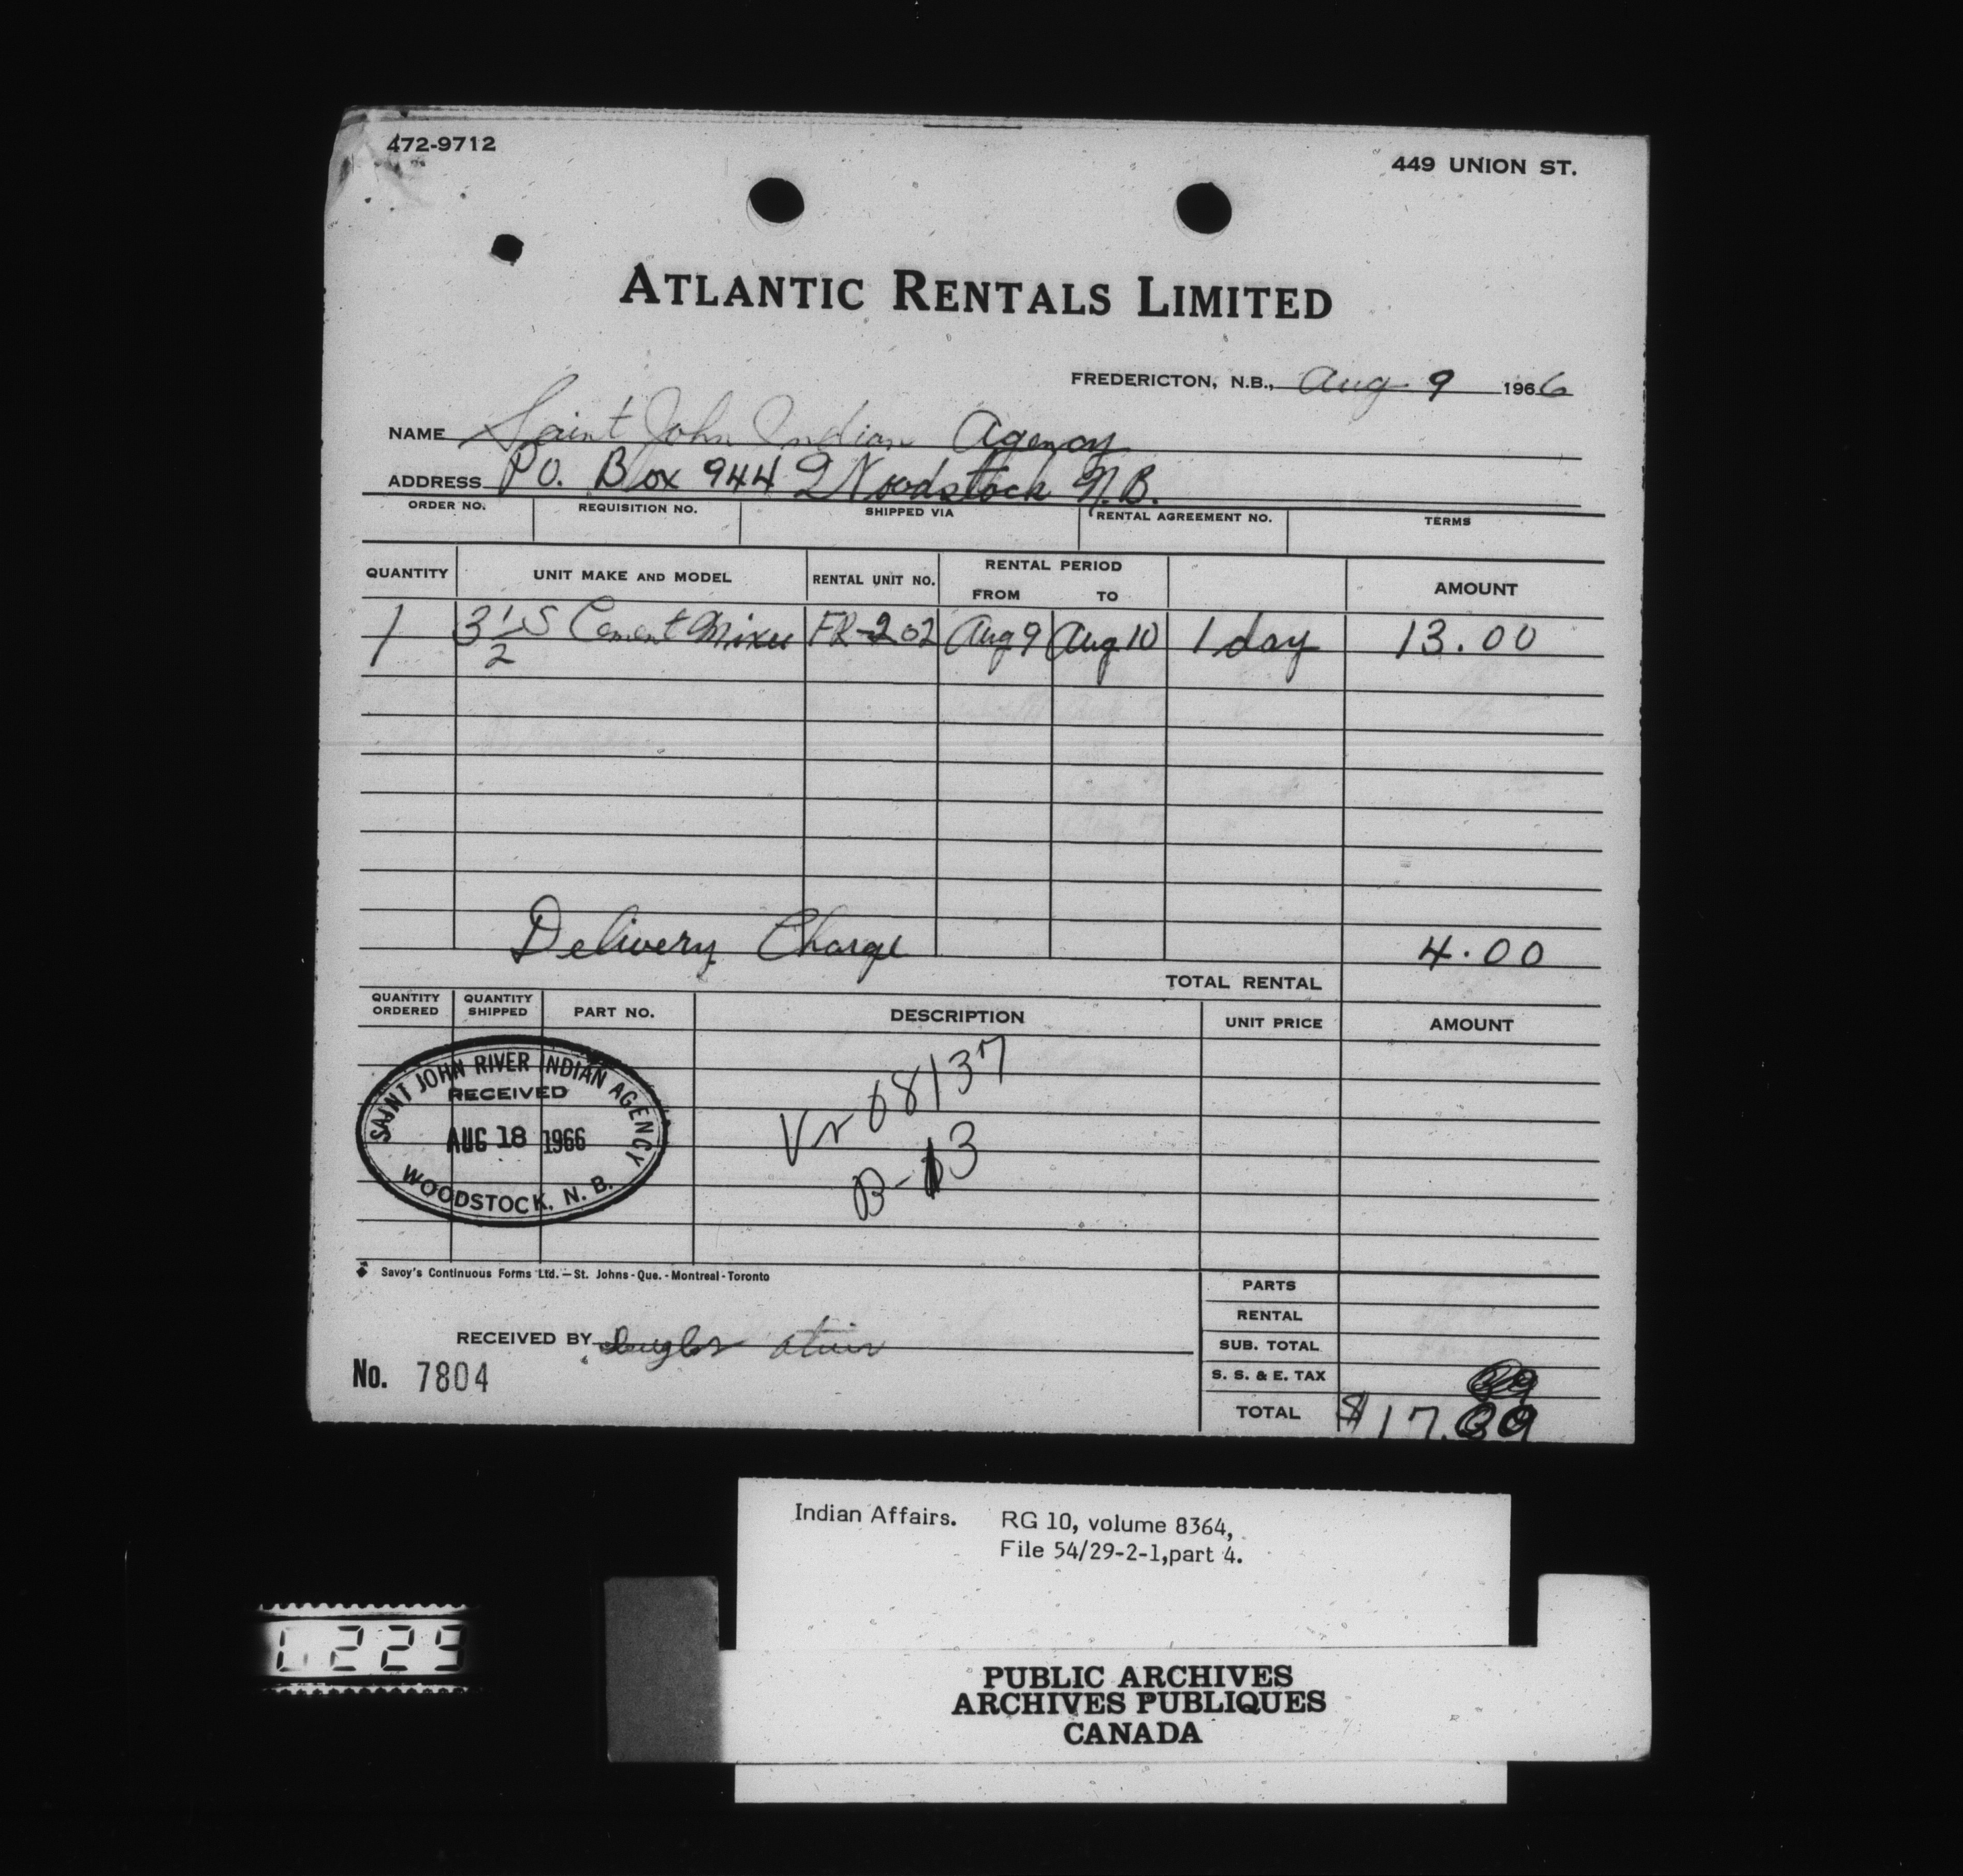 472-9712
449 UNION ST.
ATLANTIC RENTALS LIMITED
FREDERICTON, N.B., Aug 9 1966
NAME Saint John Indian Agency
ADDRESS P.O. Box 944 Woodstock N.B.
ORDER NO. REQUISITION NO. SHIPPED VIA RENTAL AGREEMENT NO. TERMS
QUANTITY UNIT MAKE AND MODEL RENTAL UNIT NO. RENTAL PERIOD FROM TO AMOUNT
1 3 1/2 S Cement Mixer FR-202 Aug 9 Aug 10 1 day 13.00
Delivery Charge 4.00
TOTAL RENTAL
QUANTITY ORDERED QUANTITY SHIPPED PART NO. DESCRIPTION UNIT PRICE AMOUNT
SAINT JOHN RIVER INDIAN AGENCY
RECEIVED
AUG 18 1966
WOODSTOCK, N. B.
Vr 68137
B-13
Savoy's Continuous Forms Ltd. — St. Johns - Que. - Montreal - Toronto
PARTS
RENTAL
SUB. TOTAL
RECEIVED BY
S. S. & E. TAX
No. 7804
TOTAL $17.
Indian Affairs. RG 10, volume 8364,
File 54/29-2-1, part 4.
229
PUBLIC ARCHIVES
ARCHIVES PUBLIQUES
CANADA